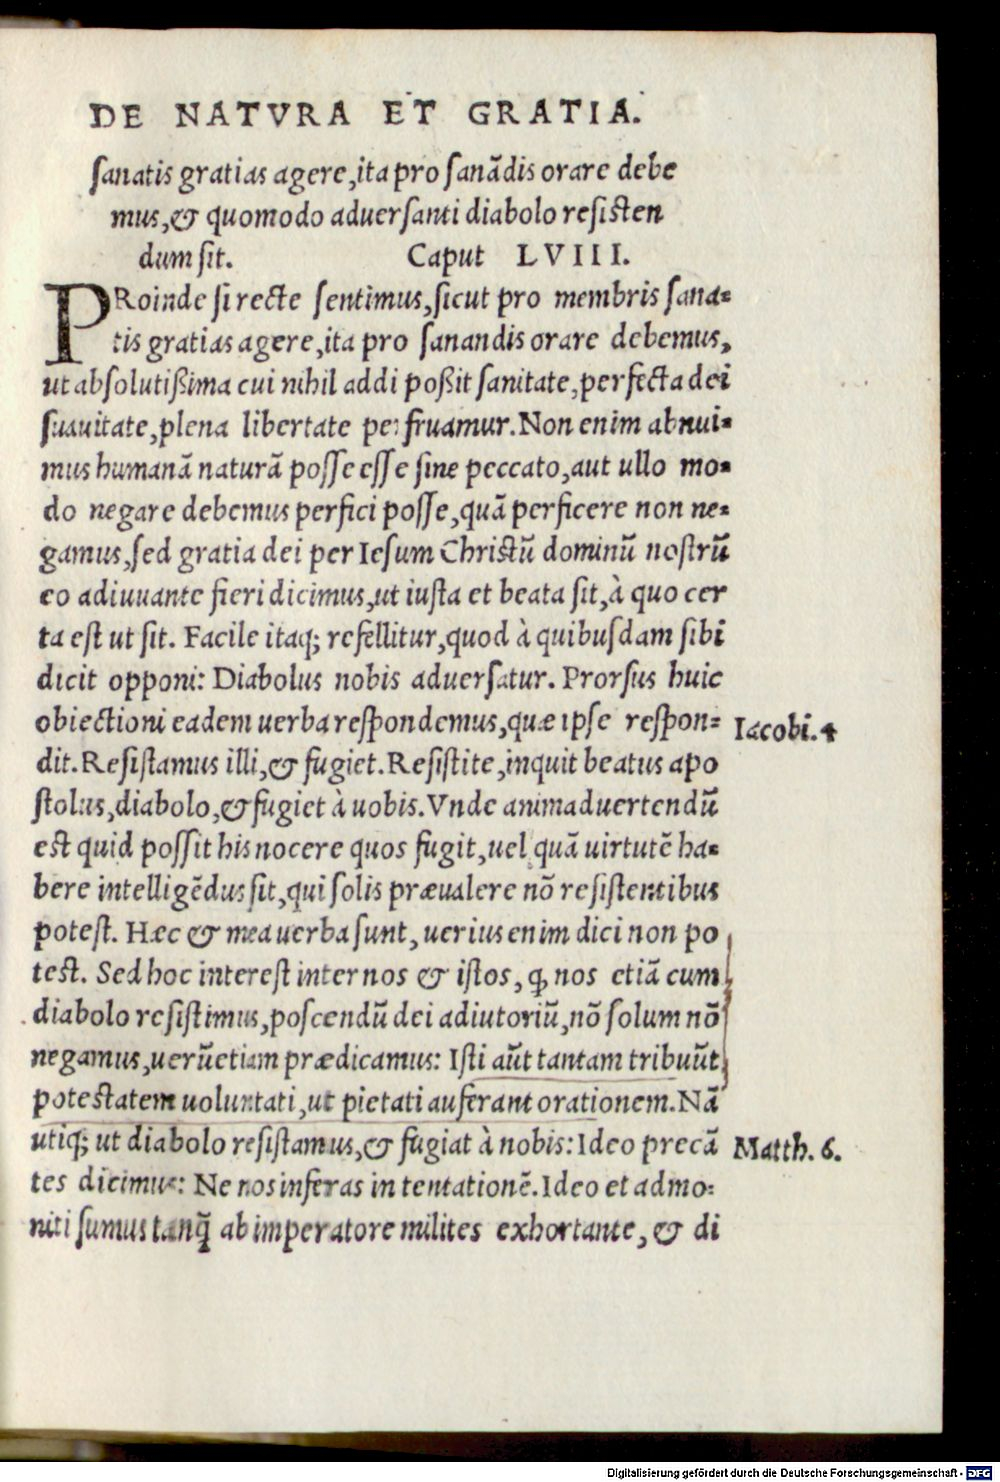 DE NATVRA ET GRATIA.
sanatis gratias agere, ita pro sanādis orare debe
mus, & quomodo aduersanti diabolo resisten
dum sit. Caput LVIII.
PRoinde si recte sentimus, sicut pro membris sana-
tis gratias agere, ita pro sanandis orare debemus,
ut absolutißima cui nihil addi poßit sanitate, perfecta dei
suauitate, plena libertate perfruamur. Non enim abnui-
mus humanā naturā posse esse sine peccato, aut ullo mo-
do negare debemus perfici posse, quā perficere non ne-
gamus, sed gratia dei per Iesum Christū dominū nostrū
eo adiuuante fieri dicimus, ut iusta et beata sit, à quo cer
ta est ut sit. Facile itaq; refellitur, quod à quibusdam sibi
dicit opponi: Diabolus nobis aduersatur. Prorsus huic
obiectioni eadem uerba respondemus, quæ ipse respon-
Iacobi. 4
dit. Resistamus illi, & fugiet. Resistite, inquit beatus apo
stolus, diabolo, & fugiet à uobis. Vnde animaduertendū
est quid possit his nocere quos fugit, uel quā uirtutē ha-
bere intelligēdus sit, qui solis præualere nō resistentibus
potest. Hæc & mea uerba sunt, uerius enim dici non po
test. Sed hoc interest inter nos & istos, ꝙ nos etiā cum
diabolo resistimus, poscendū dei adiutoriū, nō solum nō
negamus, uerūetiam prædicamus: Isti aūt tantam tribuūt
potestatem uoluntati, ut pietati auferant orationem. Nā
utiq; ut diabolo resistamus, & fugiat à nobis: Ideo precā
Matth. 6.
tes dicimus: Ne nos inferas in tentationē. Ideo et admo-
niti sumus tanq̄ ab imperatore milites exhortante, & di
Digitalisierung gefördert durch die Deutsche Forschungsgemeinschaft - DFG